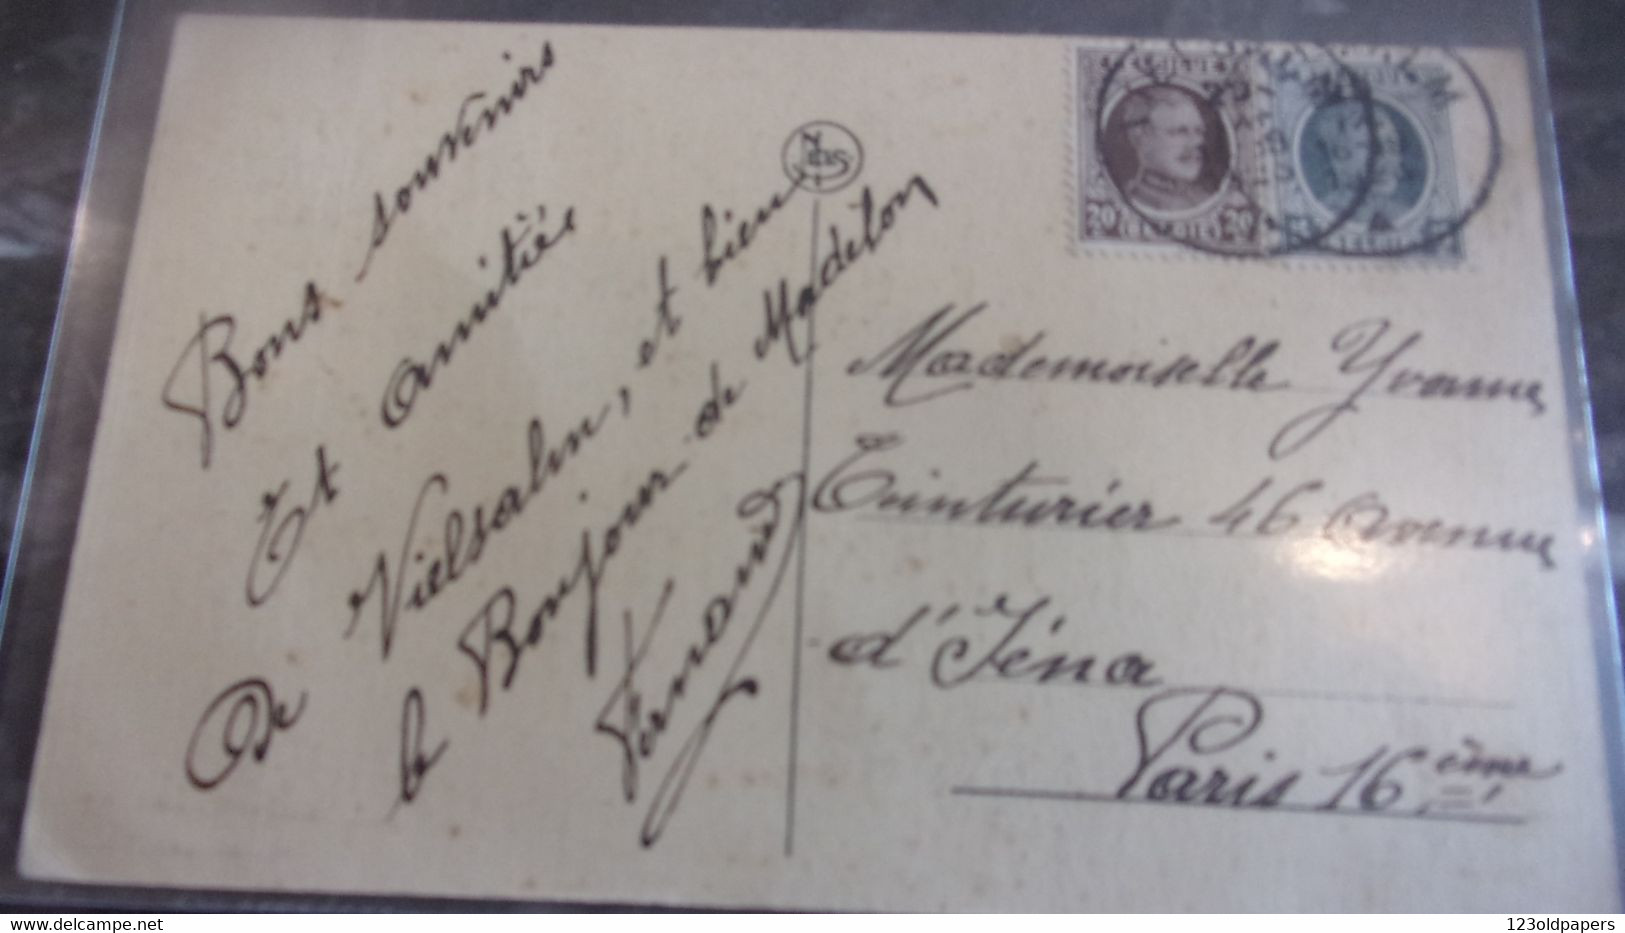 Bons souvenirs
Et amitiés
De Vielsalm, et bien
le Bonjour de Madelon
Fernand
NELS
20 20
BELGIË
BELGIE
Mademoiselle Yvonne
Teinturier 46 Avenue
d'Iéna
Paris 16ième
delcampe.net
123oldpapers